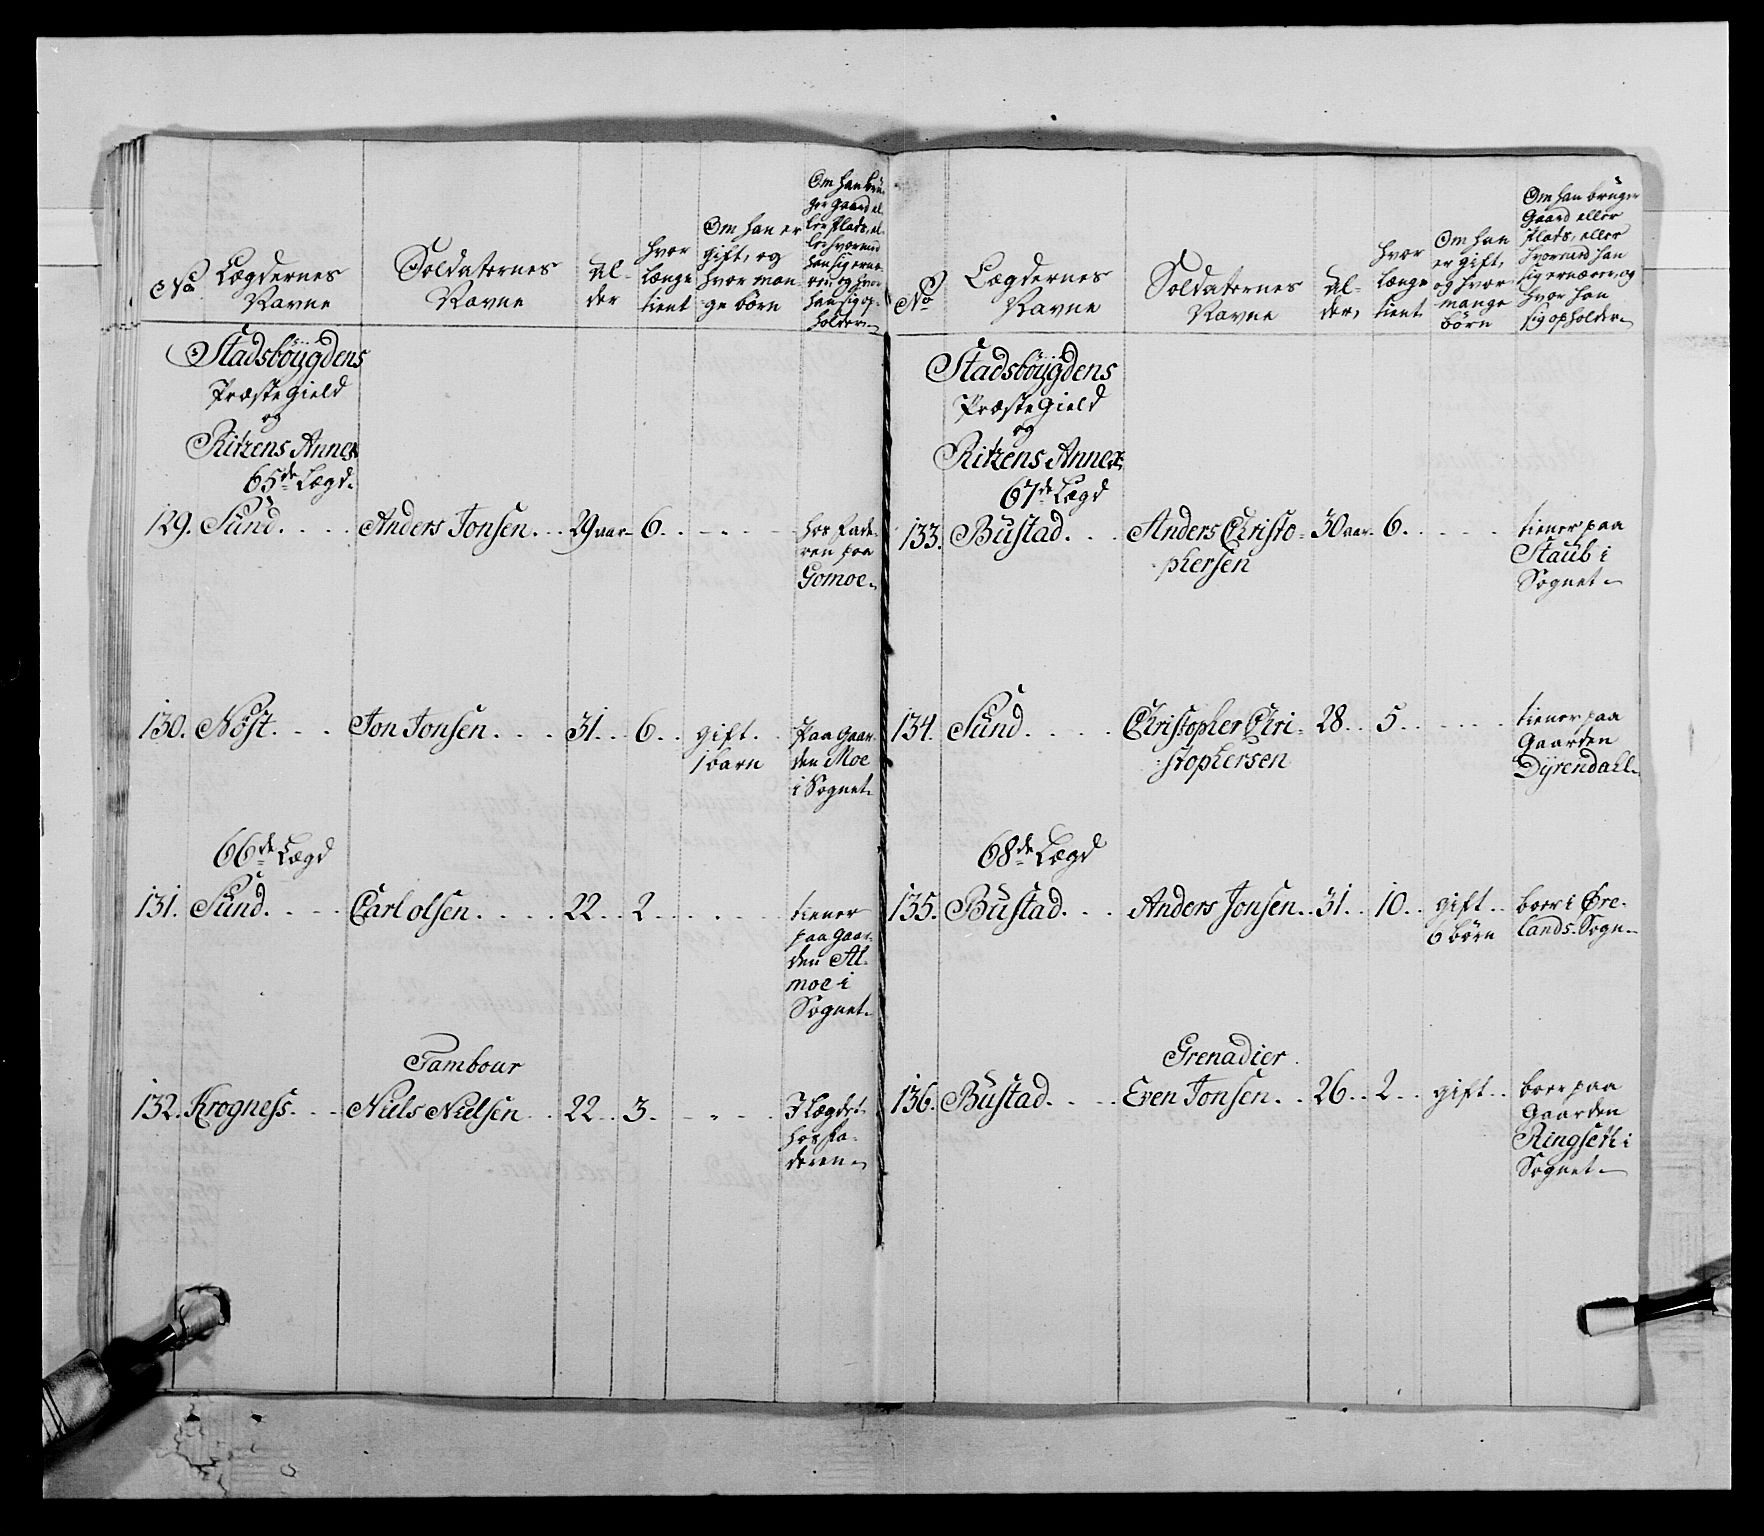 No
Lægdernes
Navne
Soldaternes
Navne
Al-
der
hvor
længe
tient
Om han er
gift, og
hvor man-
ge börn
Om han bru-
ger gaard el-
ler Plads, el-
ler hvormed
han sig ernæ-
rer, og hvor
han sig op-
holder
Stadsböÿgdens
Præste Gield
og
Ritzens Annex
65de Lægd.
129. Sund. Anders Jonsen. 29 aar 6. hos Fade-
ren paa
Gomoe.
130. Nöst. Jon Jonsen. 31. 6. gift. Paa Gaar-
1 barn den Moe
i Sognet
66de Lægd
131. Sund. Carl olsen. 22. 2. tiener
paa Gaar-
den Al-
moe i
Sognet
Tambour
132. Krogness. Niels Nielsen 22. 3. I Lægdet
hos Fa-
deren
No
Lægdernes
Navne
Soldaternes
Navne
Al-
der,
hvor
længe
tient
Om han
er gift,
og hvor
mange
börn
Om han bruger
Gaard eller
Plads, eller
hvormed han
sig ernærer, og
hvor han
sig opholder
Stadsböÿgdens
Præste Gield
og
Ritzens Annex
67de Lægd
133. Bustad. Anders Christo- 30 aar 6. tiener paa
phersen Staub i
Sognet
134. Sund. Christopher Chri- 28. 5. tiener paa
stophersen Gaarden
Dÿrendahl
68de Lægd
135. Bustad. Anders Jonsen. 31. 10. gift. boer i Øre-
6 börn lands Sogn
Grenadier
136. Bustad. Even Jonsen. 26. 2. gift. boer paa
Gaarden
Ringseth i
Sognet